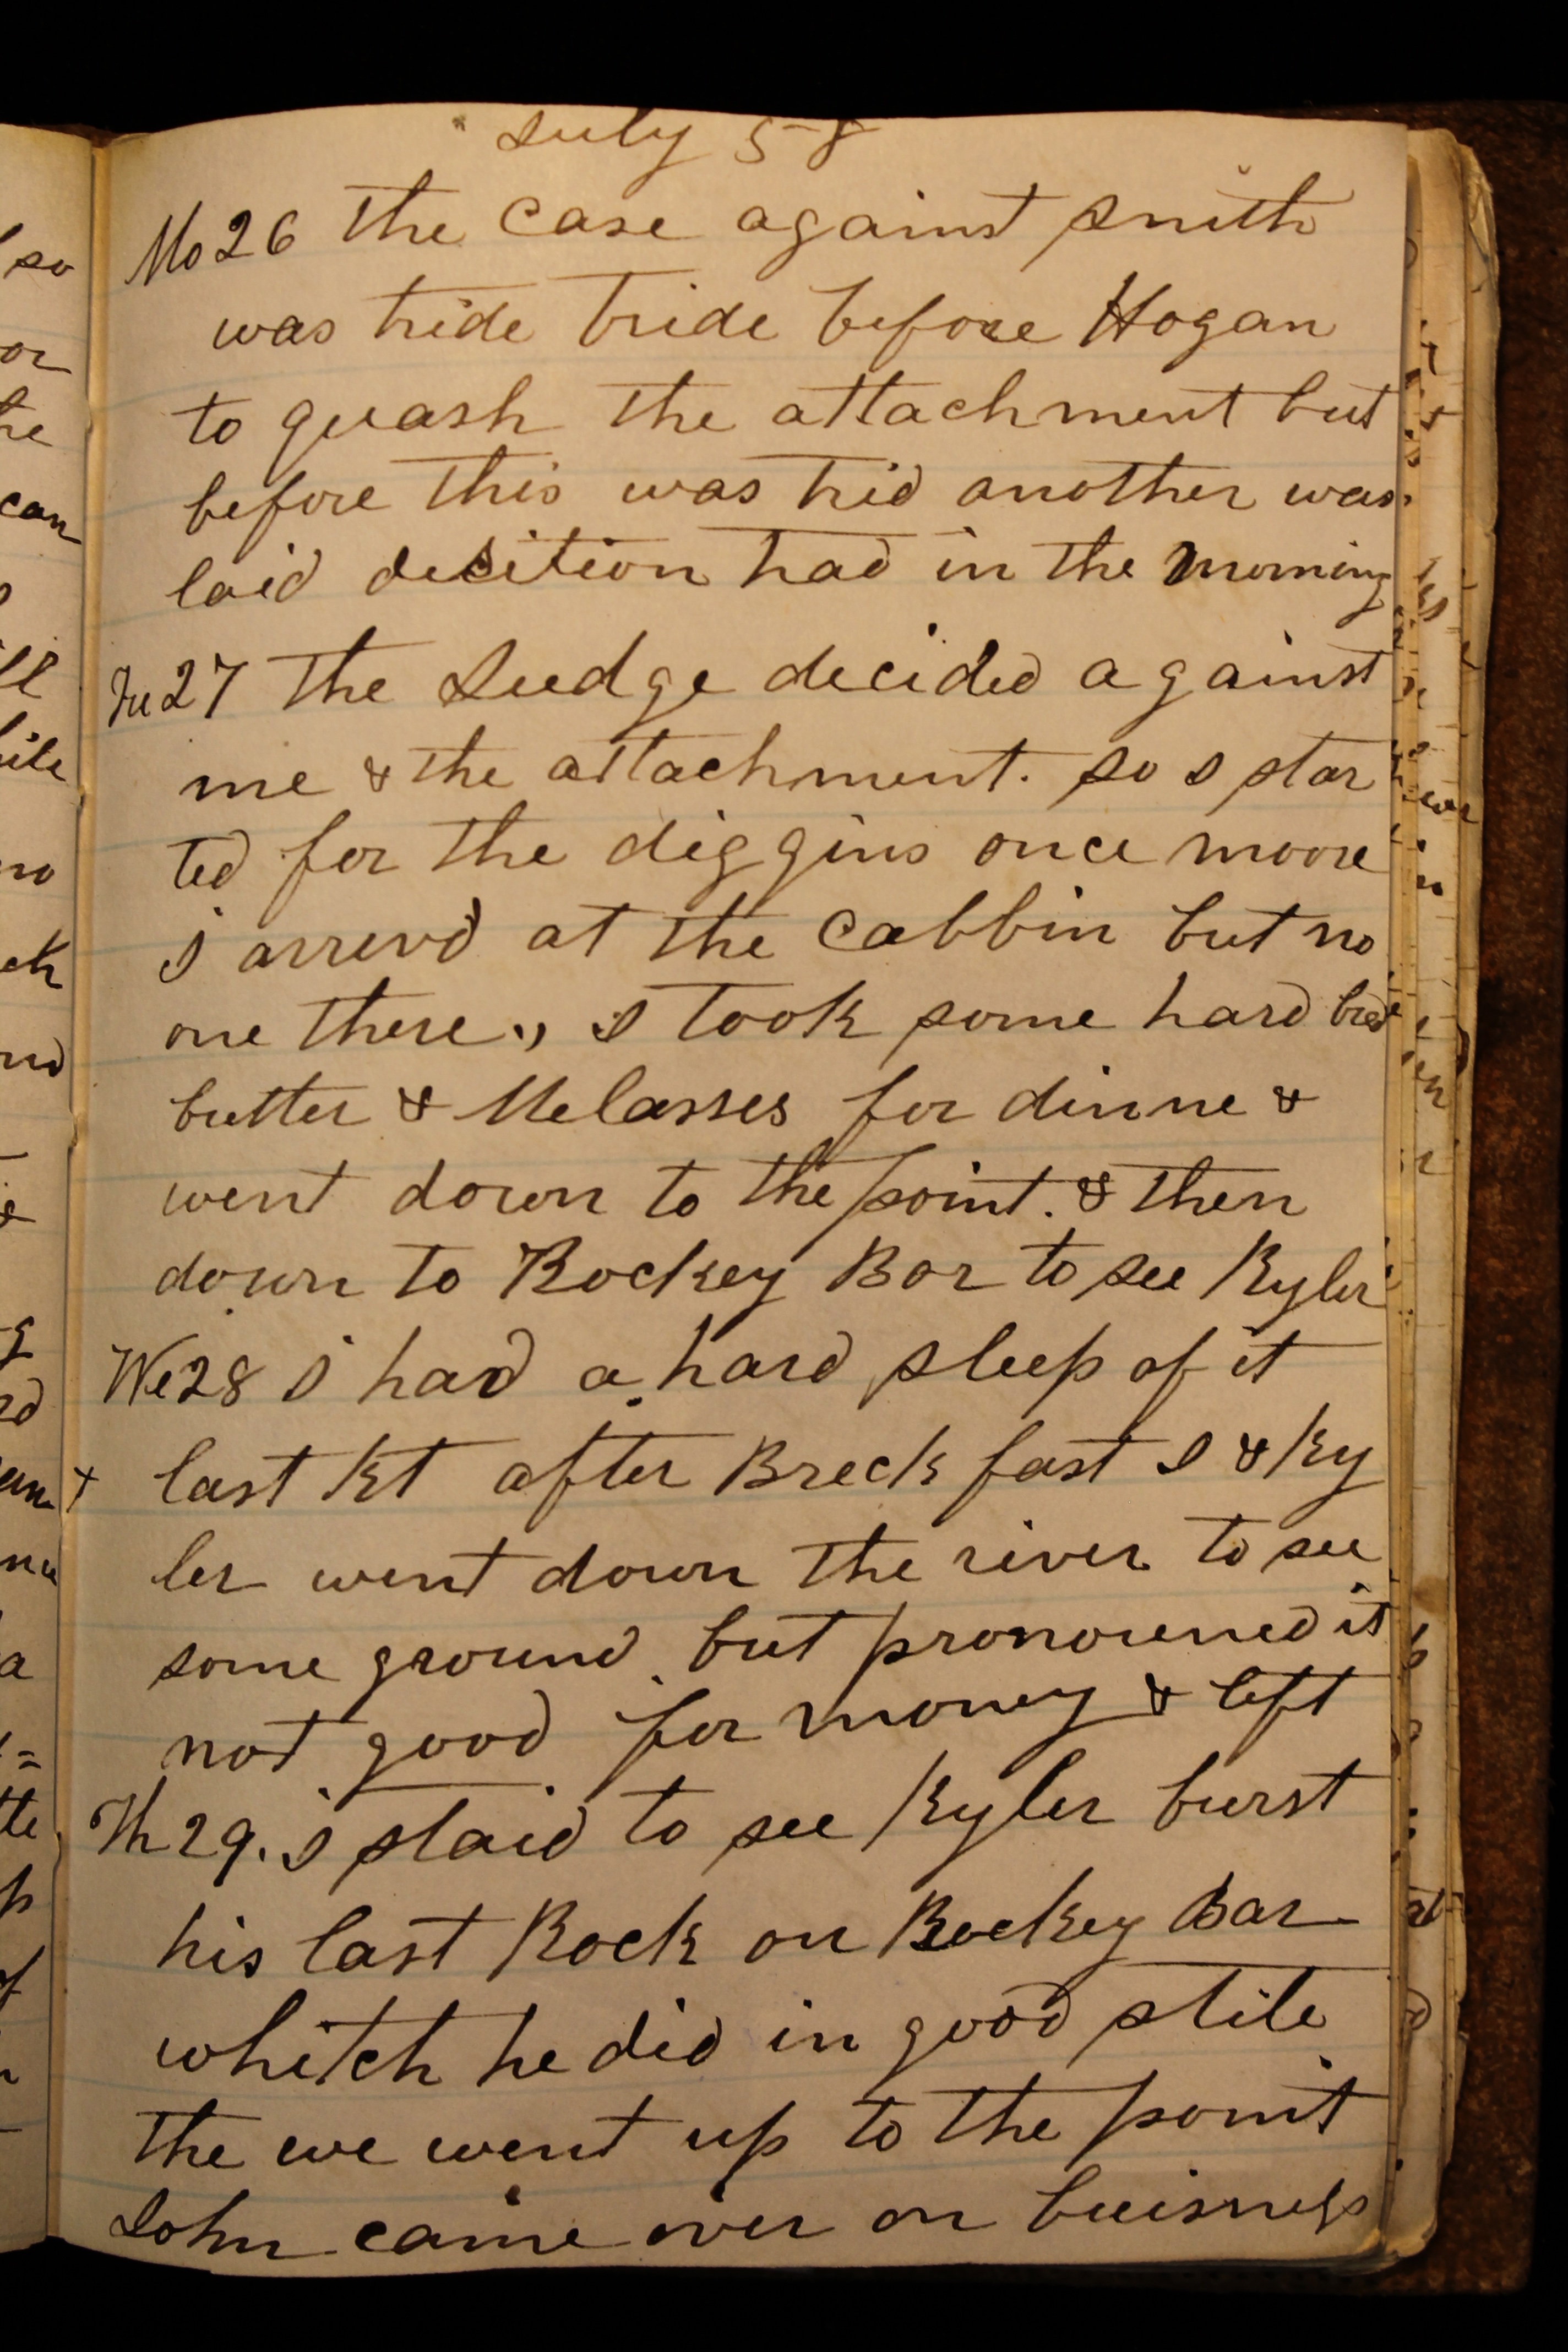 July 58
Mo 26 the case against smith
was tride tride before Hogan
to quash the attachment but
before this was trid another was
laid desition had in the morning
Tu 27 the Judge decided against
me & the attachment. so I star
ted for the diggins once moore
I arrivd at the Cabbin but no
one there., I took some hard bred
butter & Melasses for dinne &
went down to the point. & then
down to Rockey Bar to see Kyler
We 28 I had a hard sleep of it
last Nt after Breck fast I & Ky
ler went down the river to see
some ground but pronouned it
not good for money & left
Th 29. I staid to see Kyler burst
his last Rock on Rockey Bar
whitch he did in good stile
the we went up to the point
John came over on buisness